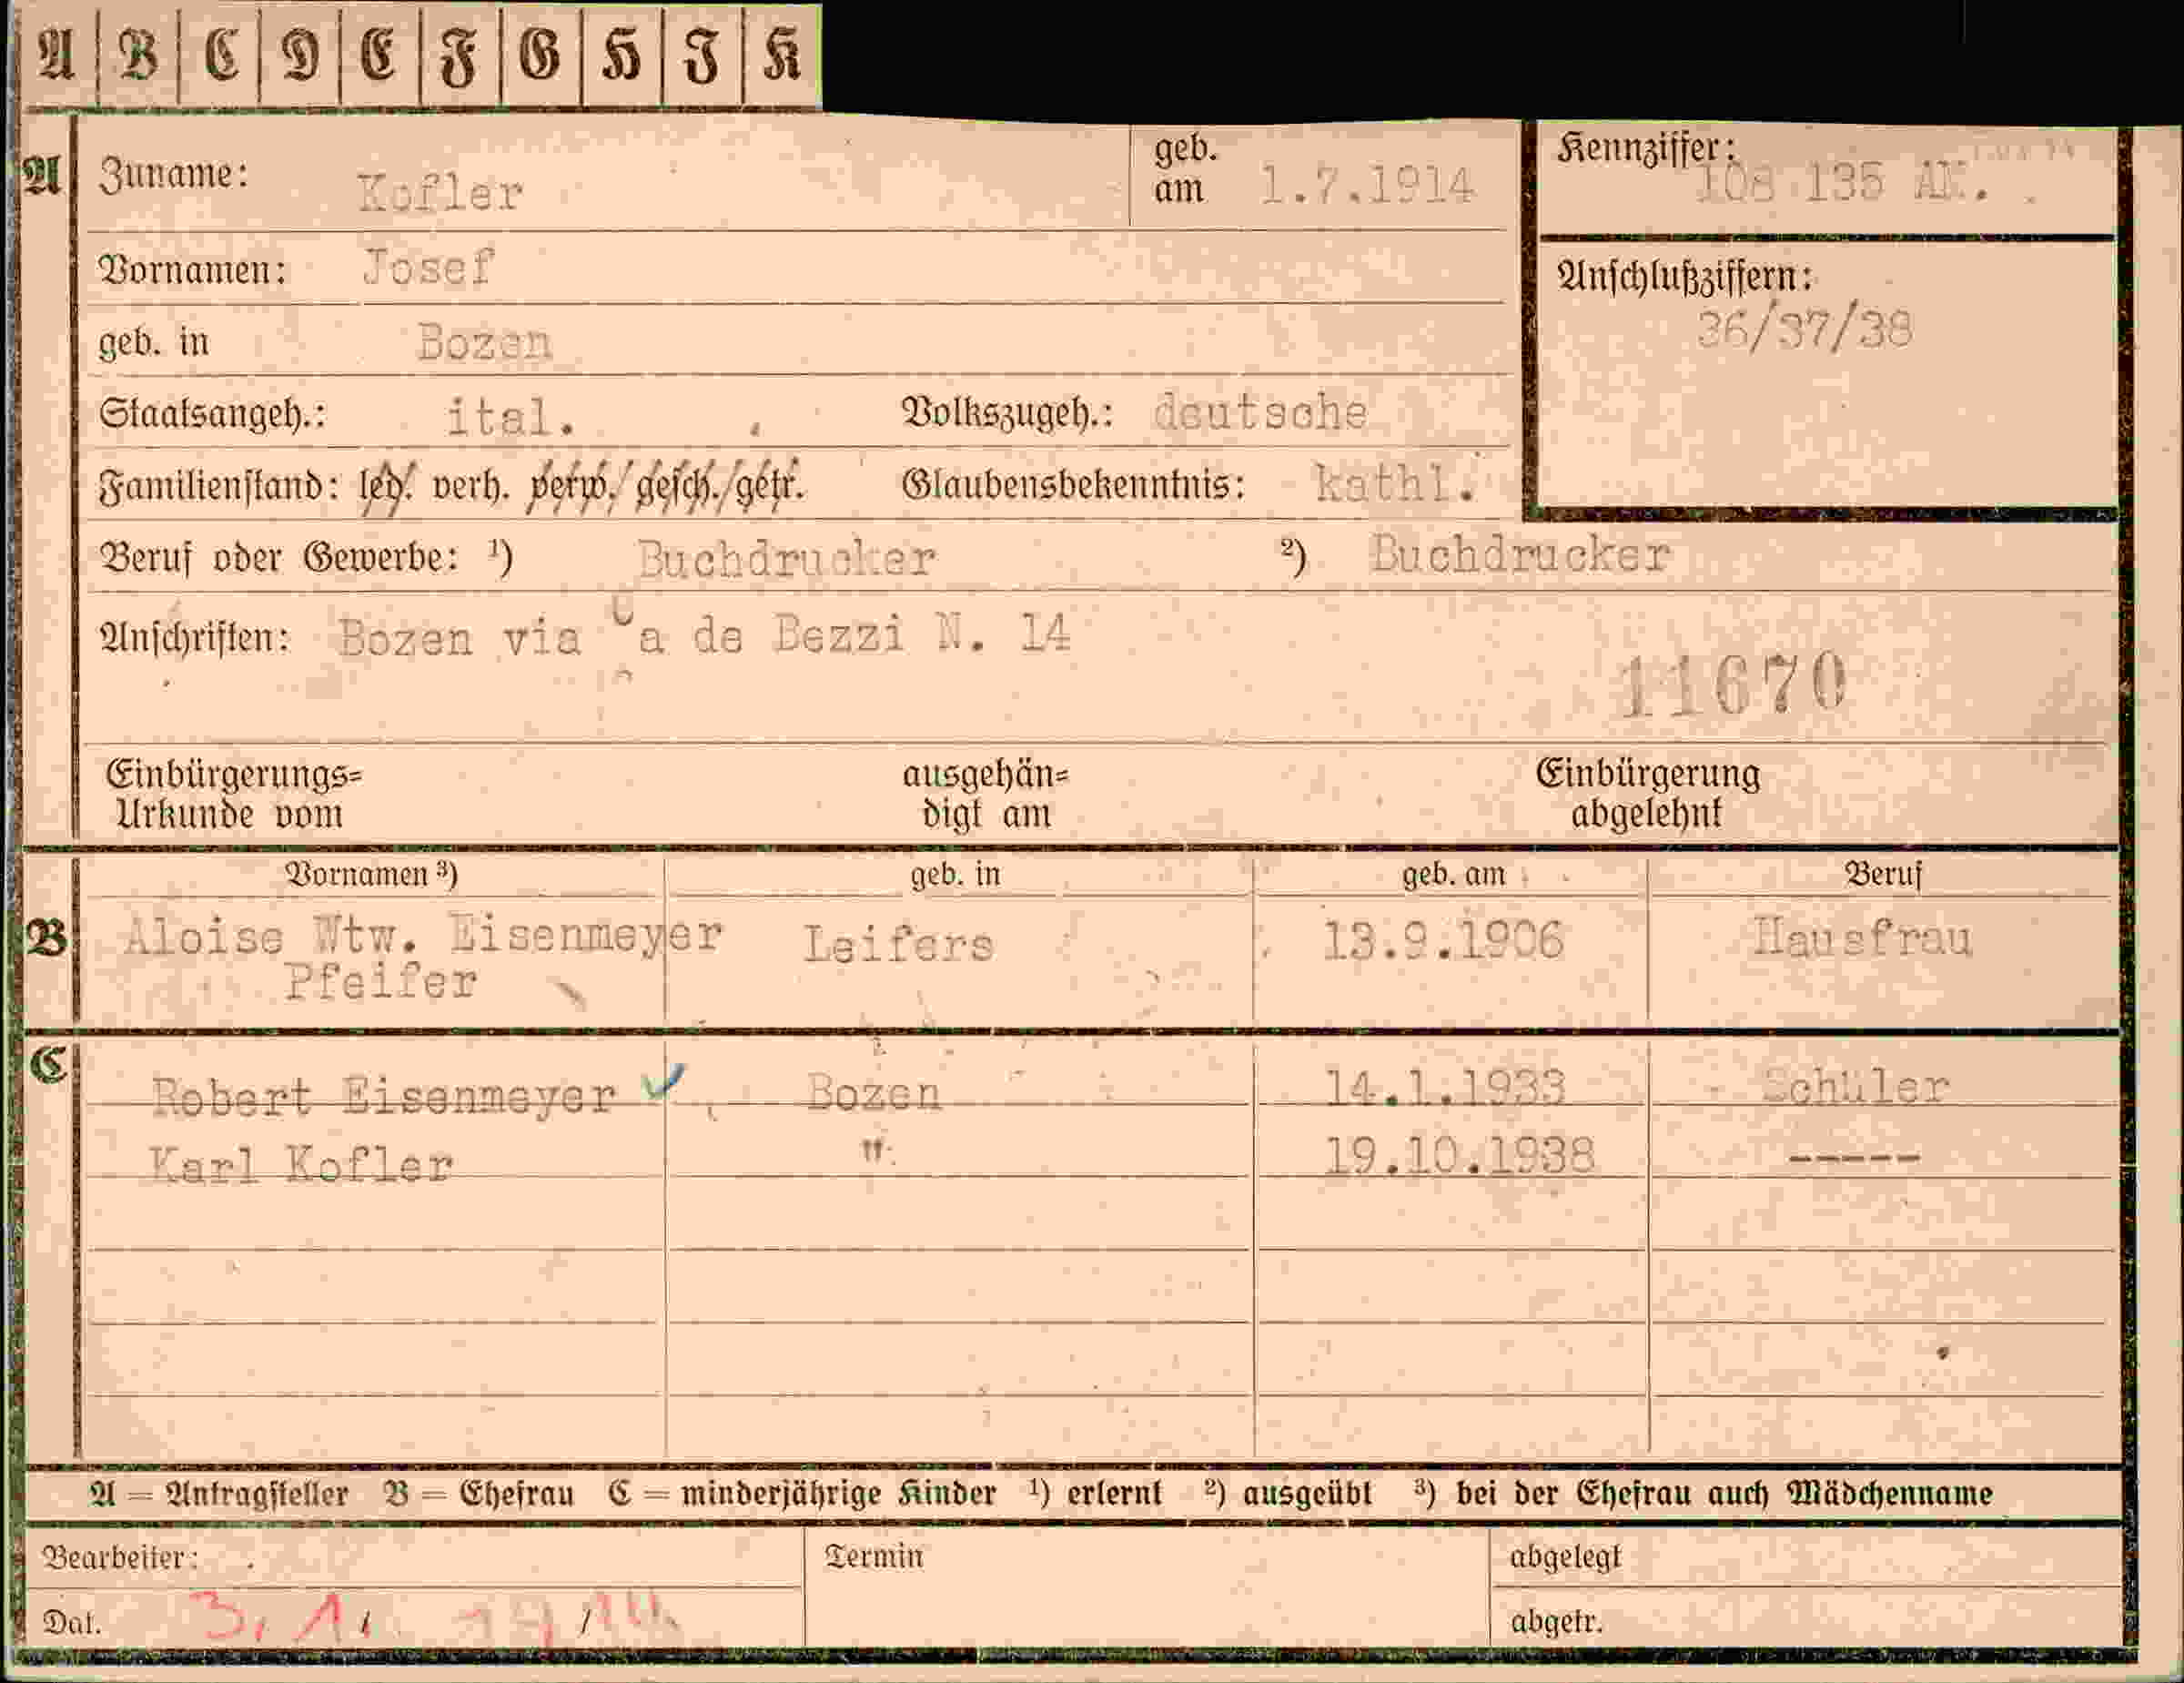 A B C D E F G H J K
A Zuname: Kofler geb. am 1.7.1914 Kennziffer: 108 135 AK.
Vornamen: Josef Anschlußziffern:
36/37/38
geb. in Bozen
Staatsangeh.: ital. Volkszugeh.: deutsche
Familienstand: led. verh. verw./gesch./getr. Glaubensbekenntnis: kathl.
Beruf oder Gewerbe: ¹) Buchdrucker ²) Buchdrucker
Anschriften: Bozen via Ca de Bezzi N. 14
11670
Einbürgerungs=
Urkunde vom
ausgehän=
digt am
Einbürgerung
abgelehnt
Vornamen ³) geb. in geb. am Beruf
B Aloise Wtw. Eisenmeyer Leifers 13.9.1906 Hausfrau
Pfeifer
C
Robert Eisenmeyer Bozen 14.1.1933 Schüler
Karl Kofler " 19.10.1938 -----
A = Antragsteller B = Ehefrau C = minderjährige Kinder ¹) erlernt ²) ausgeübt ³) bei der Ehefrau auch Mädchenname
Bearbeiter: Termin abgelegt
Dat. 3. 1. abgetr.